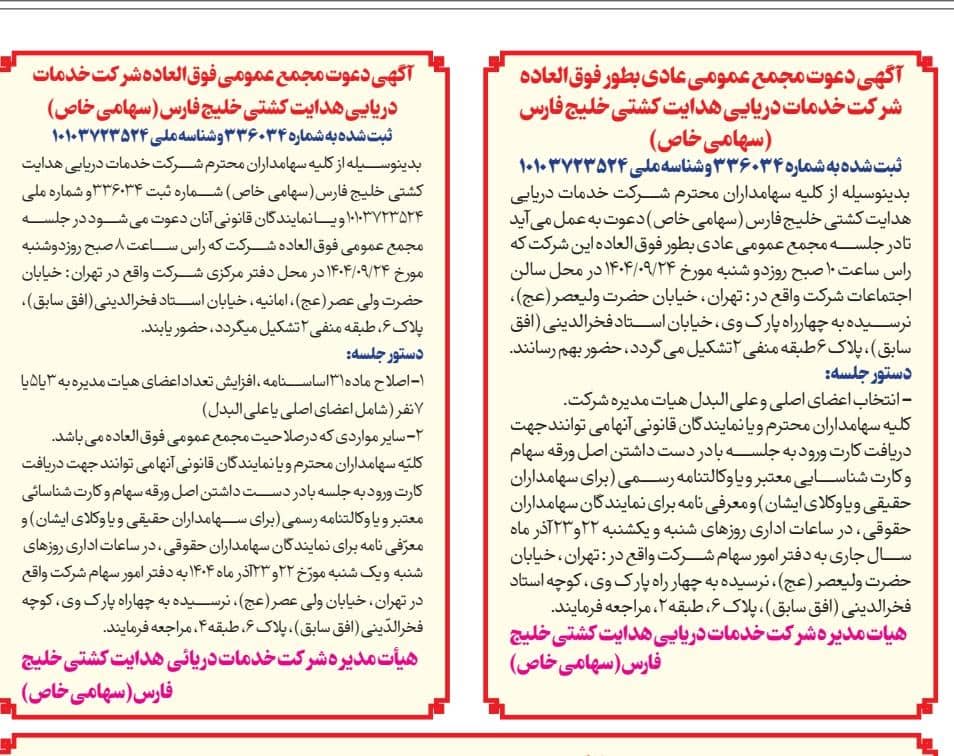 آگهی دعوت مجمع عمومی عادی بطور فوق العاده
شرکت خدمات دریایی هدایت کشتی خلیج فارس
(سهامی خاص)
ثبت شده به شماره ۳۳۶۰۳۴ و شناسه ملی ۱۰۱۰۳۷۲۳۵۲۴
بدینوسیله از کلیه سهامداران محترم شرکت خدمات دریایی
هدایت کشتی خلیج فارس (سهامی خاص) دعوت به عمل می آید
تا در جلسه مجمع عمومی عادی بطور فوق العاده این شرکت که
راس ساعت ۱۰ صبح روز دو شنبه مورخ ۱۴۰۴/۰۹/۲۴ در محل سالن
اجتماعات شرکت واقع در : تهران ، خیابان حضرت ولیعصر (عج)،
نرسیده به چهارراه پارک وی ، خیابان استاد فخرالدینی (افق
سابق) ، پلاک ۶ طبقه منفی ۲ تشکیل می گردد ، حضور بهم رسانند.
دستور جلسه:
- انتخاب اعضای اصلی و علی البدل هیات مدیره شرکت.
کلیه سهامداران محترم و یا نمایندگان قانونی آنها می توانند جهت
دریافت کارت ورود به جلسه با در دست داشتن اصل ورقه سهام
و کارت شناسایی معتبر و یا وکالتنامه رسمی (برای سهامداران
حقیقی و یا وکلای ایشان) و معرفی نامه برای نمایندگان سهامداران
حقوقی ، در ساعات اداری روزهای شنبه و یکشنبه ۲۲ و ۲۳ آذر ماه
سال جاری به دفتر امور سهام شرکت واقع در : تهران ، خیابان
حضرت ولیعصر (عج) ، نرسیده به چهار راه پارک وی ، کوچه استاد
فخرالدینی (افق سابق) ، پلاک ۶ ، طبقه ۲، مراجعه فرمایند.
هیات مدیره شرکت خدمات دریایی هدایت کشتی خلیج
فارس (سهامی خاص)
آگهی دعوت مجمع عمومی فوق العاده شرکت خدمات
دریایی هدایت کشتی خلیج فارس (سهامی خاص)
ثبت شده به شماره ۳۳۶۰۳۴ و شناسه ملی ۱۰۱۰۳۷۲۳۵۲۴
بدینوسیله از کلیه سهامداران محترم شرکت خدمات دریایی هدایت
کشتی خلیج فارس (سهامی خاص) شماره ثبت ۳۳۶۰۳۴ و شماره ملی
۱۰۱۰۳۷۲۳۵۲۴ و یا نمایندگان قانونی آنان دعوت می شود در جلسه
مجمع عمومی فوق العاده شرکت که راس ساعت ۸ صبح روز دوشنبه
مورخ ۱۴۰۴/۰۹/۲۴ در محل دفتر مرکزی شرکت واقع در تهران : خیابان
حضرت ولی عصر (عج)، امانیه ، خیابان استاد فخرالدینی (افق سابق) ،
پلاک ۶، طبقه منفی ۲ تشکیل میگردد ، حضور یابند.
دستور جلسه:
۱- اصلاح ماده ۳۱ اساسنامه ، افزایش تعداد اعضای هیات مدیره به ۳ یا ۵ یا
۷ نفر (شامل اعضای اصلی یا علی البدل)
۲- سایر مواردی که در صلاحیت مجمع عمومی فوق العاده می باشد.
کلیّه سهامداران محترم و یا نمایندگان قانونی آنها می توانند جهت دریافت
کارت ورود به جلسه با در دست داشتن اصل ورقه سهام و کارت شناسائی
معتبر و یا وکالتنامه رسمی (برای سهامداران حقیقی و یا وکلای ایشان) و
معرّفی نامه برای نمایندگان سهامداران حقوقی ، در ساعات اداری روزهای
شنبه و یک شنبه مورّخ ۲۲ و ۲۳ آذر ماه ۱۴۰۴ به دفتر امور سهام شرکت واقع
در تهران ، خیابان ولی عصر (عج) ، نرسیده به چهاراه پارک وی ، کوچه
فخرالدّینی (افق سابق) ، پلاک ۶، طبقه ۴، مراجعه فرمایند.
هیأت مدیره شرکت خدمات دریائی هدایت کشتی خلیج
فارس (سهامی خاص)